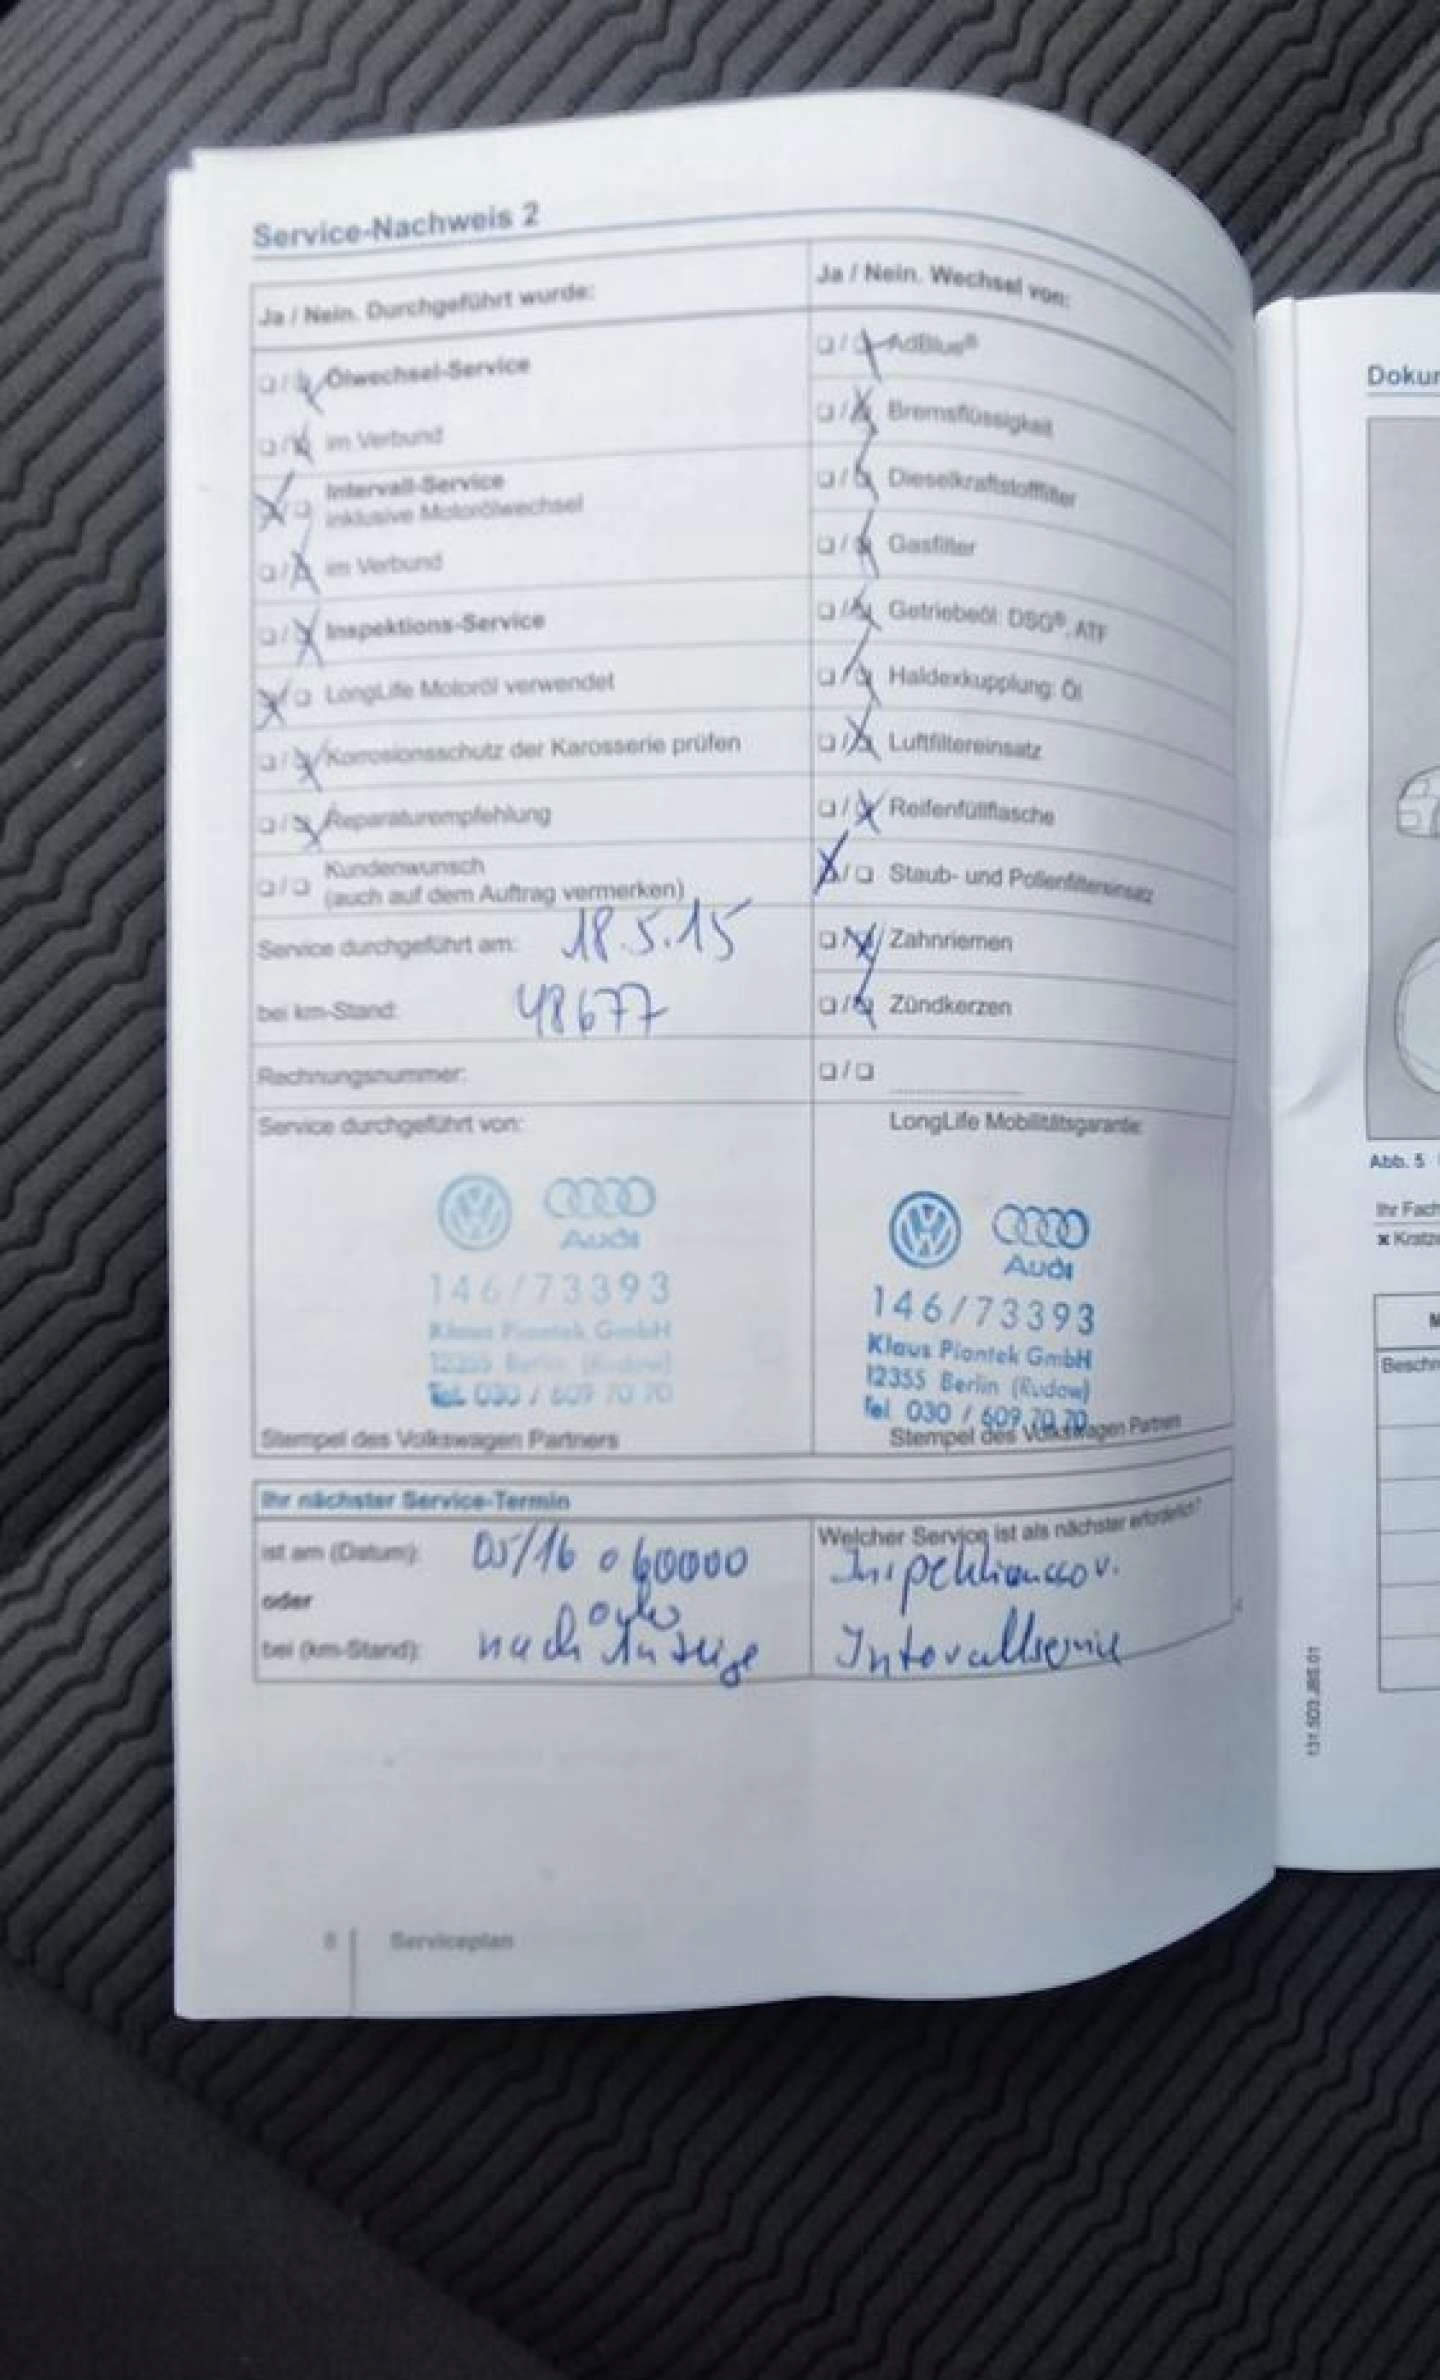 Service-Nachweis 2
Ja / Nein. Durchgeführt wurde:
❏ / ❏ Ölwechsel-Service
❏ / ❏ im Verbund
❏ / ❏ Intervall-Service
inklusive Motorölwechsel
❏ / ❏ im Verbund
❏ / ❏ Inspektions-Service
❏ / ❏ LongLife Motoröl verwendet
❏ / ❏ Korrosionsschutz der Karosserie prüfen
❏ / ❏ Reparaturempfehlung
❏ / ❏ Kundenwunsch
(auch auf dem Auftrag vermerken)
Service durchgeführt am: 18.5.15
bei km-Stand: 48677
Rechnungsnummer:
Ja / Nein. Wechsel von:
❏ / ❏ AdBlue®
❏ / ❏ Bremsflüssigkeit
❏ / ❏ Dieselkraftstofffilter
❏ / ❏ Gasfilter
❏ / ❏ Getriebeöl: DSG®, ATF
❏ / ❏ Haldexkupplung: Öl
❏ / ❏ Luftfiltereinsatz
❏ / ❏ Reifenfüllflasche
❏ / ❏ Staub- und Pollenfiltereinsatz
❏ / ❏ Zahnriemen
❏ / ❏ Zündkerzen
❏ / ❏
Service durchgeführt von:
Audi
146/73393
Klaus Piontek GmbH
12355 Berlin (Rudow)
Tel. 030 / 609 70 70
Stempel des Volkswagen Partners
LongLife Mobilitätsgarantie:
Audi
146/73393
Klaus Piontek GmbH
12355 Berlin (Rudow)
Tel 030 / 609 70 70
Stempel des Volkswagen Partners
Ihr nächster Service-Termin
ist am (Datum): 05/16 o 60000
oder
oder
bei (km-Stand): nach Anzeige
Welcher Service ist als nächster erforderlich?
Intervallservice
Serviceplan
Dokur
Abb. 5
Ihr Fach
Kratze
M
Beschr
131.5D3.JBS.01